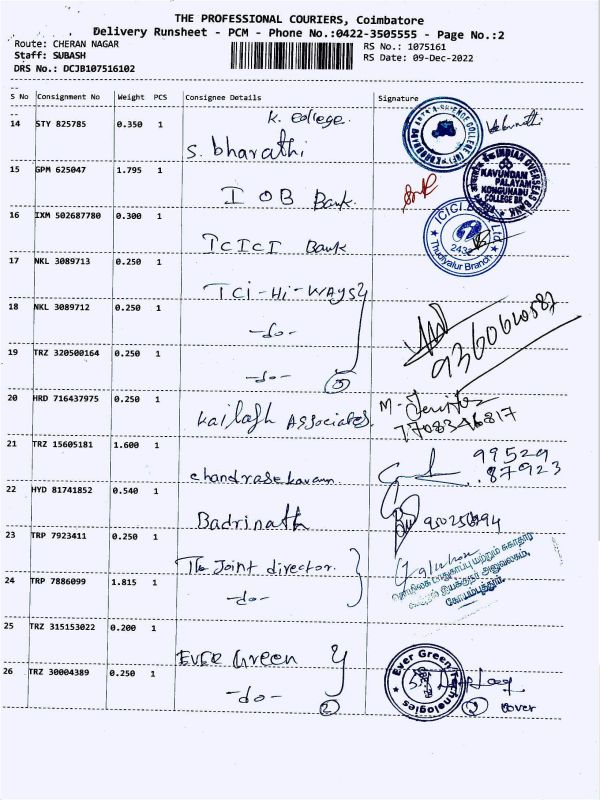 THE PROFESSIONAL COURIERS, Coimbatore
Delivery Runsheet - PCM - Phone No.:0422-3505555 - Page No.:2
Route: CHERAN NAGAR
RS No.: 1075161
Staff: SUBASH
RS Date: 09-Dec-2022
DRS No.: DCJB107516102
S No Consignment No Weight PCS Consignee Details Signature
K. College.
14 STY 825785 0.350 1
S. bharathi
15 GPM 625047 1.795 1
IOB Bank
16 IXM 502687780 0.300 1
ICICI Bank
17 NKL 3089713 0.250 1
TCI-Hi-WAYS
18 NKL 3089712 0.250 1
-do-
19 TRZ 320500164 0.250 1
-do-
3
9360610587
20 HRD 716437975 0.250 1
Kailash Associates.
7708346817
21 TRZ 15605181 1.600 1
Chandrasekaran
99529
87923
22 HYD 81741852 0.540 1
Badrinath
23 TRP 7923411 0.250 1
The Joint director.
24 TRP 7886099 1.815 1
-do-
25 TRZ 315153022 0.200 1
EVER Green
26 TRZ 30004389 0.250 1
-do-
2
INDIAN OVERSEAS BANK
KAVUNDAM
PALAYAM
KONGUNADU
COLLEGE BR.
ICICI Bank Ltd
Thudiyalur Branch
Ever Green Technologies
2 cover
கோயம்புத்தூர்.